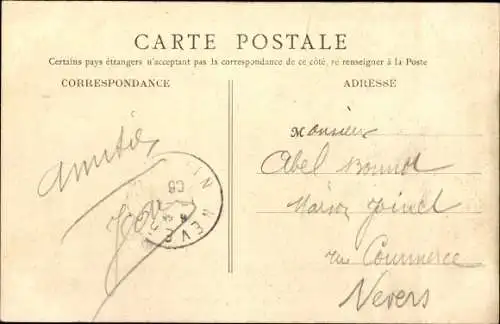 CARTE POSTALE
Certains pays étrangers n'acceptant pas la correspondance de ce côté, se renseigner à la Poste
CORRESPONDANCE
ADRESSE
Amitiés
Monsieur
Abel Bonnot
Maison Pinet
rue Commerce
Nevers